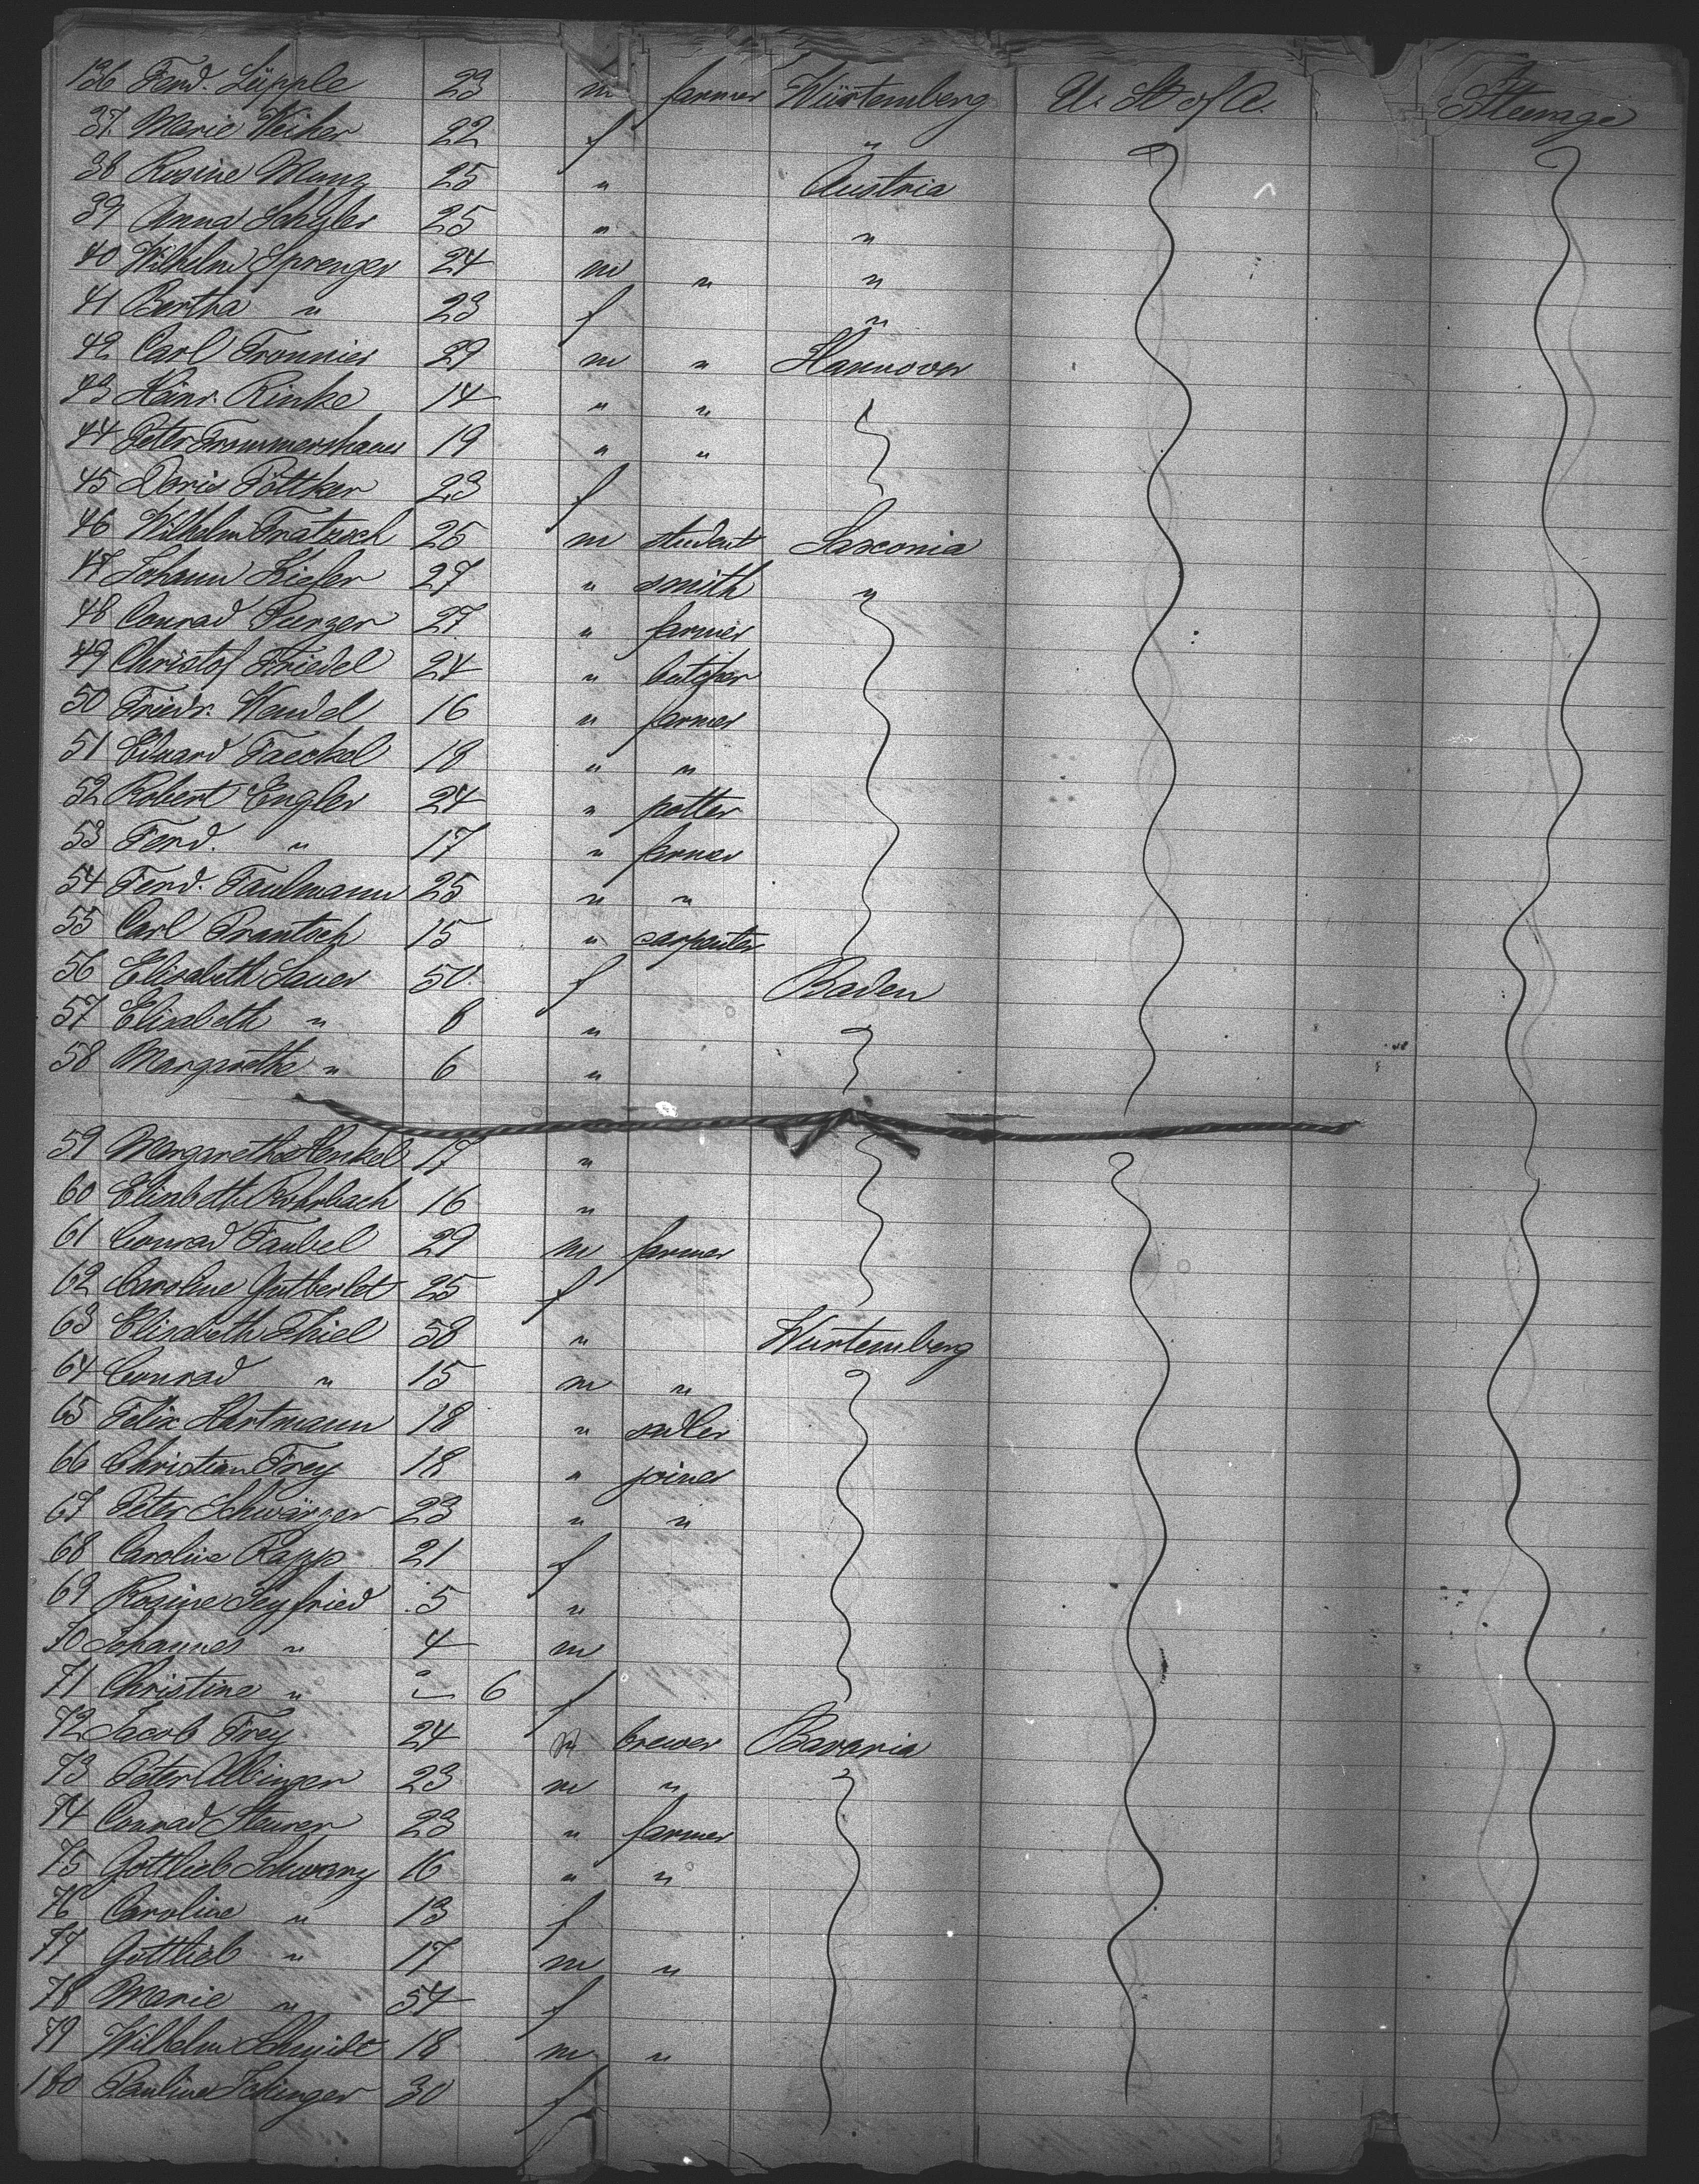 136 Ferd. Lüpple 23 m farmer Würtemberg U. St of A. Steerage
37. Marie Weiher 22 f "
38 Rosine Munz 25 " Austria
39 Anna 25 " "
40 Wilhelm Sprenger 24 m " "
41 Bertha " 23 f "
42 Carl Fronnier 29 m " Hannover
43 Heinr. Rinke 14 " "
44 Peter Trommershaus 19 " "
45 Doris Pöttker 23 f
46 Wilhelm Fratzsch 25 m student Saxonia
47 Johann Kiefer 27 " smith "
48 Conrad 27 " farmer
49 Christof Friedel 24 " butcher
50 Friedr. Wendel 16 " farmer
51 Eduard Faeckel 18 " "
52 Robert Engler 24 " potter
53 Ferd. " 17 " farmer
54 Ferd. Faulmann 25 " "
55 Carl Prantsch 15 " carpenter
56 Elisabeth Sauer 50 f Baden
57 Elisabeth " 8 "
58 Margarethe " 6 "
59 Margareth Henkel 17 "
60 Elisabeth Rohrbach 16 "
61 Conrad Taubel 29 m farmer
62 Caroline Gutberlet 25 f
63 Elisabeth Thiel 58 " Wurtemberg
64 Conrad " 15 m "
65 Felix Hartmann 18 " sadler
66 Christian Frey 18 " joiner
67 Peter Schwärzer 23 " "
68 Caroline Rapp 21 f
69 Rosine Seyfried 5 "
70 Johannes " 4 m
71 Christine " 6 f
72 Jacob Frey 24 m brewer Bavaria
73 Peter 23 m "
74 Conrad Steurer 23 " farmer
75 Gottlieb Schwarz 16 " "
76 Caroline " 13 f
77 Gottlieb " 17 m "
78 Marie " 54 f
79 Wilhelm Schmidt 18 m "
180 Pauline 30 f